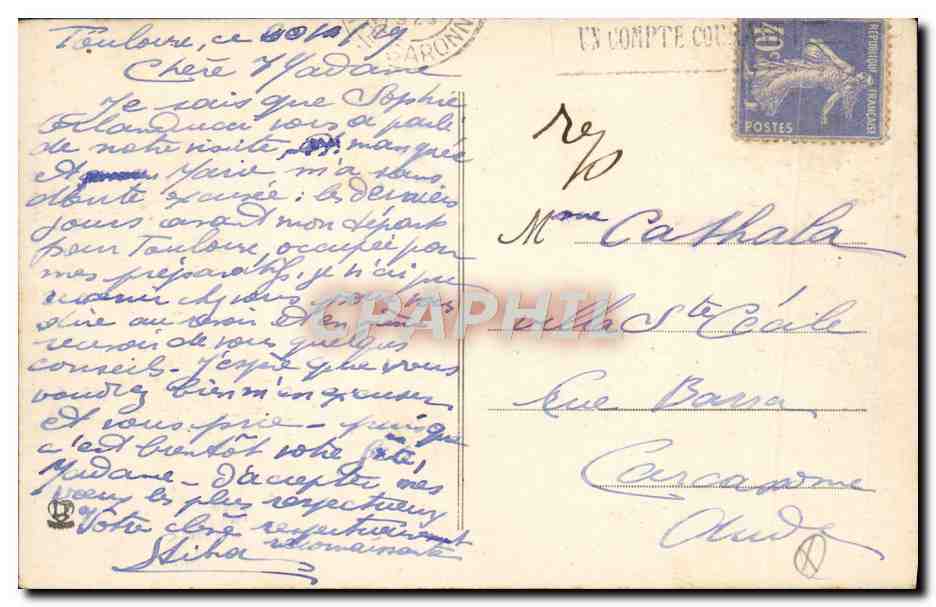 Toulouse, ce 20/11/29
Chère Madame
Je sais que Sophie
vous a parlé
de notre visite manquée
et Marie m'a sans
doute excusée : les derniers
jours avant mon départ
pour Toulouse, occupée par
mes préparatifs, je n'ai pu
revenir chez vous pour vous
dire au revoir et en
recevoir de vous quelques
conseils. J'espère que vous
voudrez bien m'en excuser
et vous prie – puisque
c'est bientôt votre fête,
Madame – d'accepter mes
vœux les plus respectueux
Votre élève respectueusement
reconnaissante
GARONNE
UN COMPTE COU
40c
REPUBLIQUE FRANÇAISE
POSTES
rep
Mme Cathala
villa Ste Cécile
Rue Barra
Carcassonne
Aude
CPAPHIL